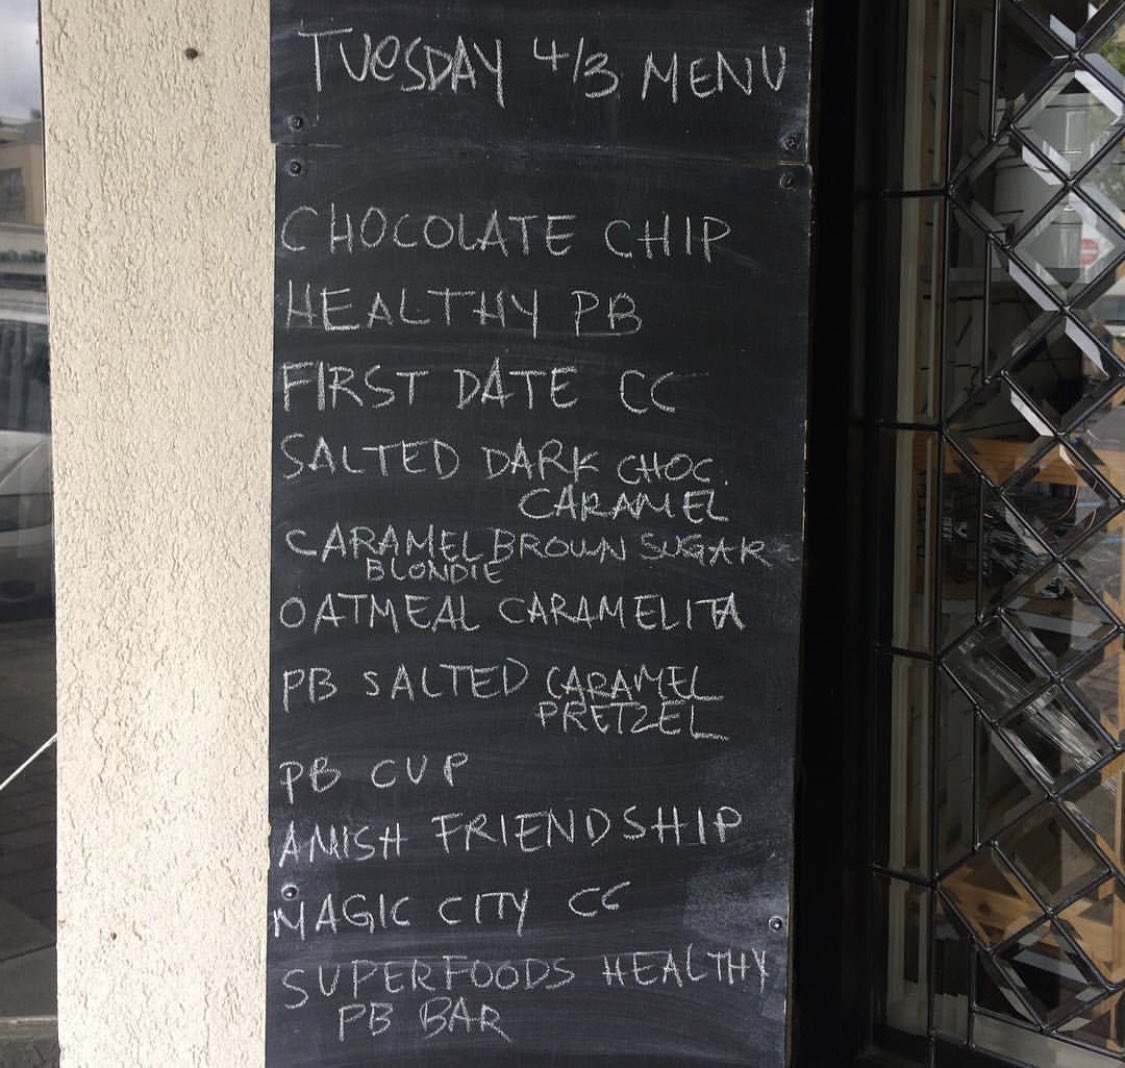 TUeSDAY 4/3 MENU
CHOCOLATE CHIP
HEALTHY PB
FIRST DATE CC
SALTED DARK CHOC.
CARAMEL
CARAMEL BROWN SUGAR
BLONDIE
OATMEAL CARAMELITA
PB SALTED CARAMEL
PRETZEL
PB CUP
AMISH FRIENDSHIP
MAGIC CITY CC
SUPERFOODS HEALTHY
PB BAR